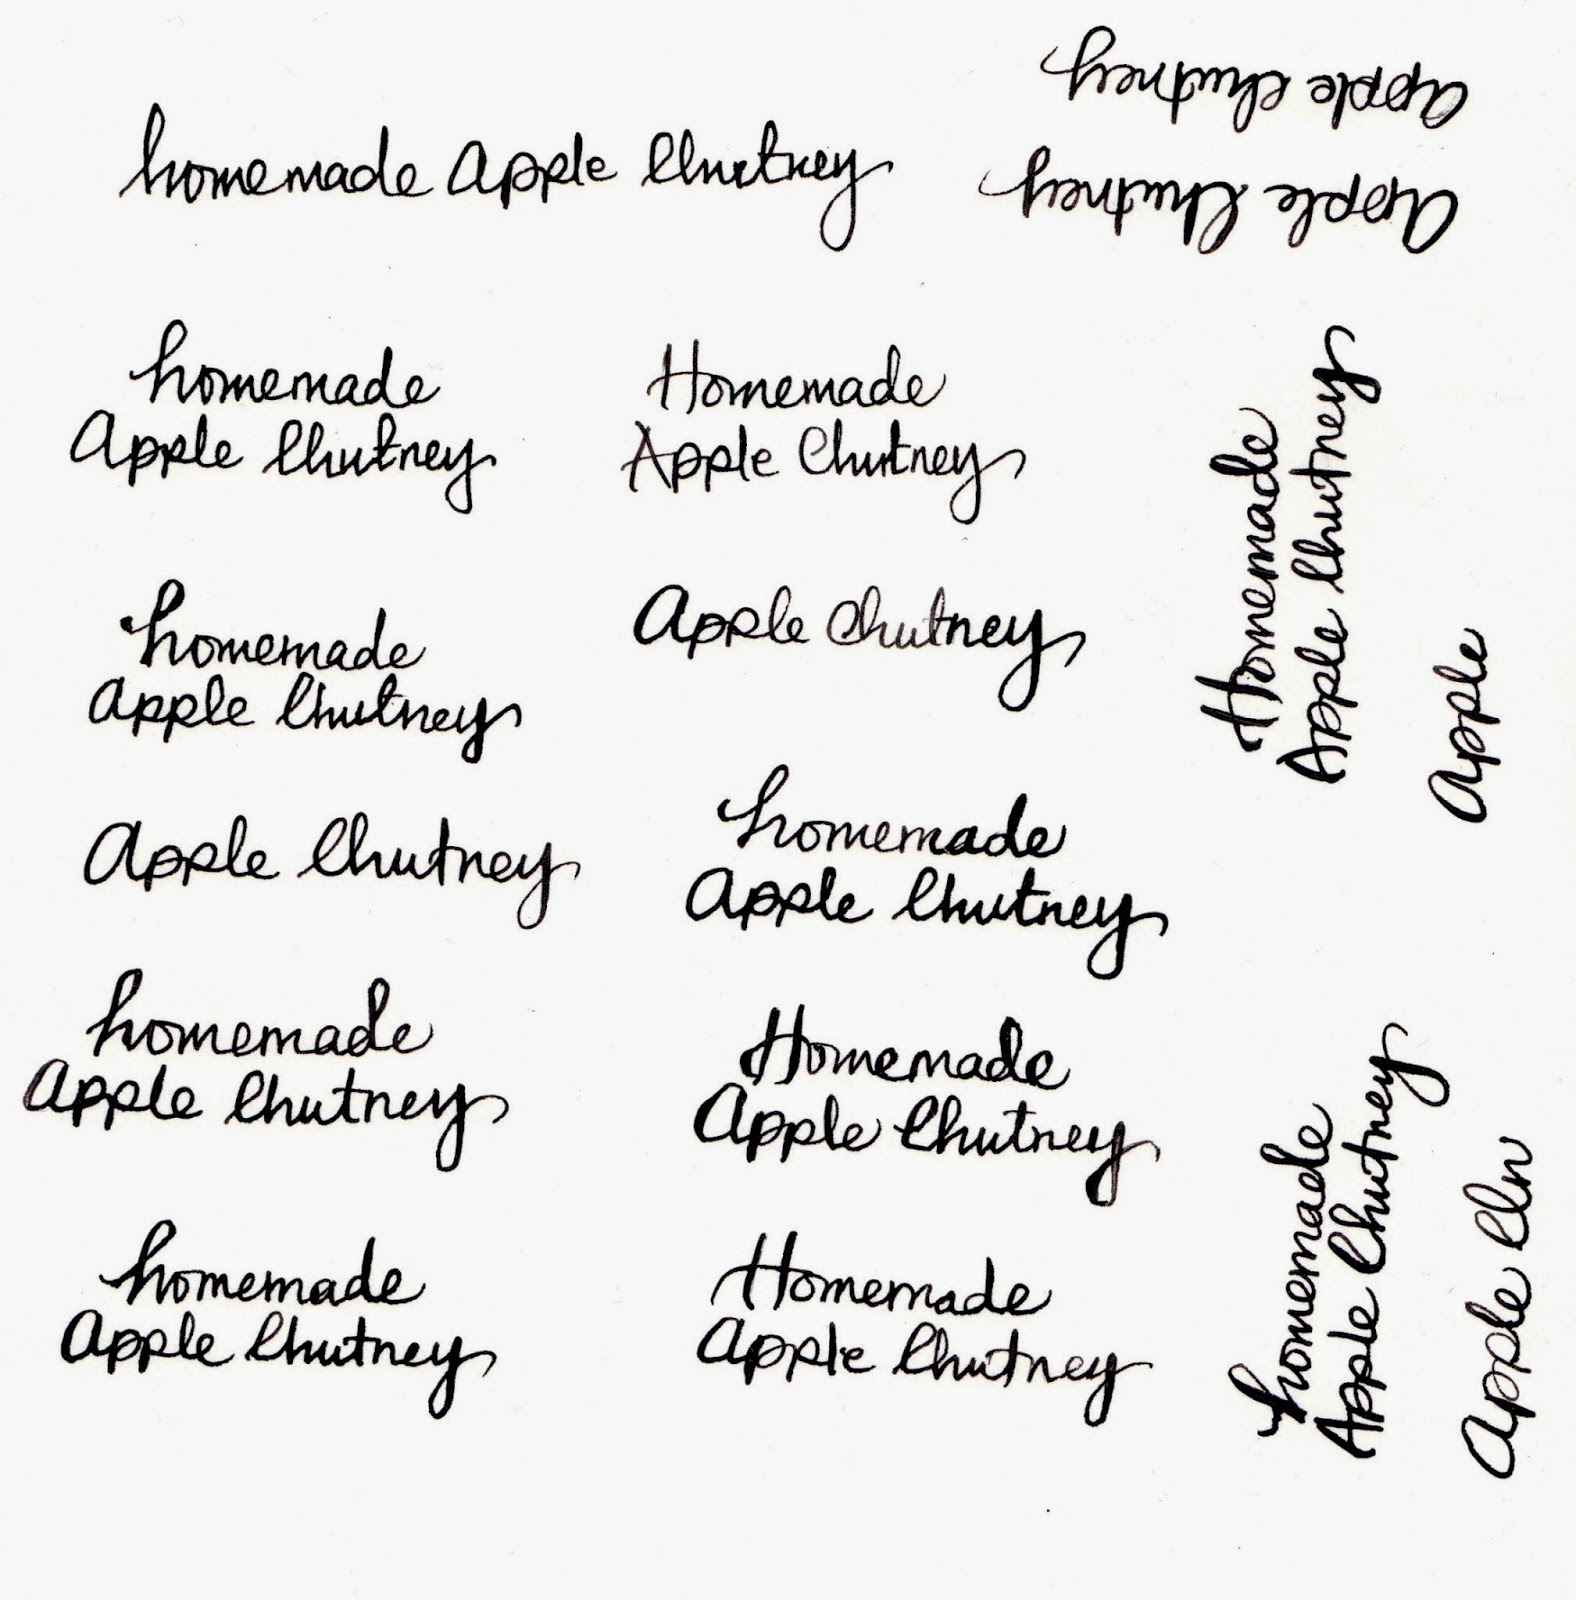 homemade Apple Chutney
homemade
Apple Chutney
homemade
Apple Chutney
Apple Chutney
homemade
Apple Chutney
homemade
Apple Chutney
Homemade
Apple Chutney
Apple Chutney
homemade
Apple Chutney
Homemade
Apple Chutney
Homemade
Apple Chutney
Apple Chutney
Apple chutney
Homemade
Apple Chutney
Apple
homemade
Apple Chutney
Apple Chu